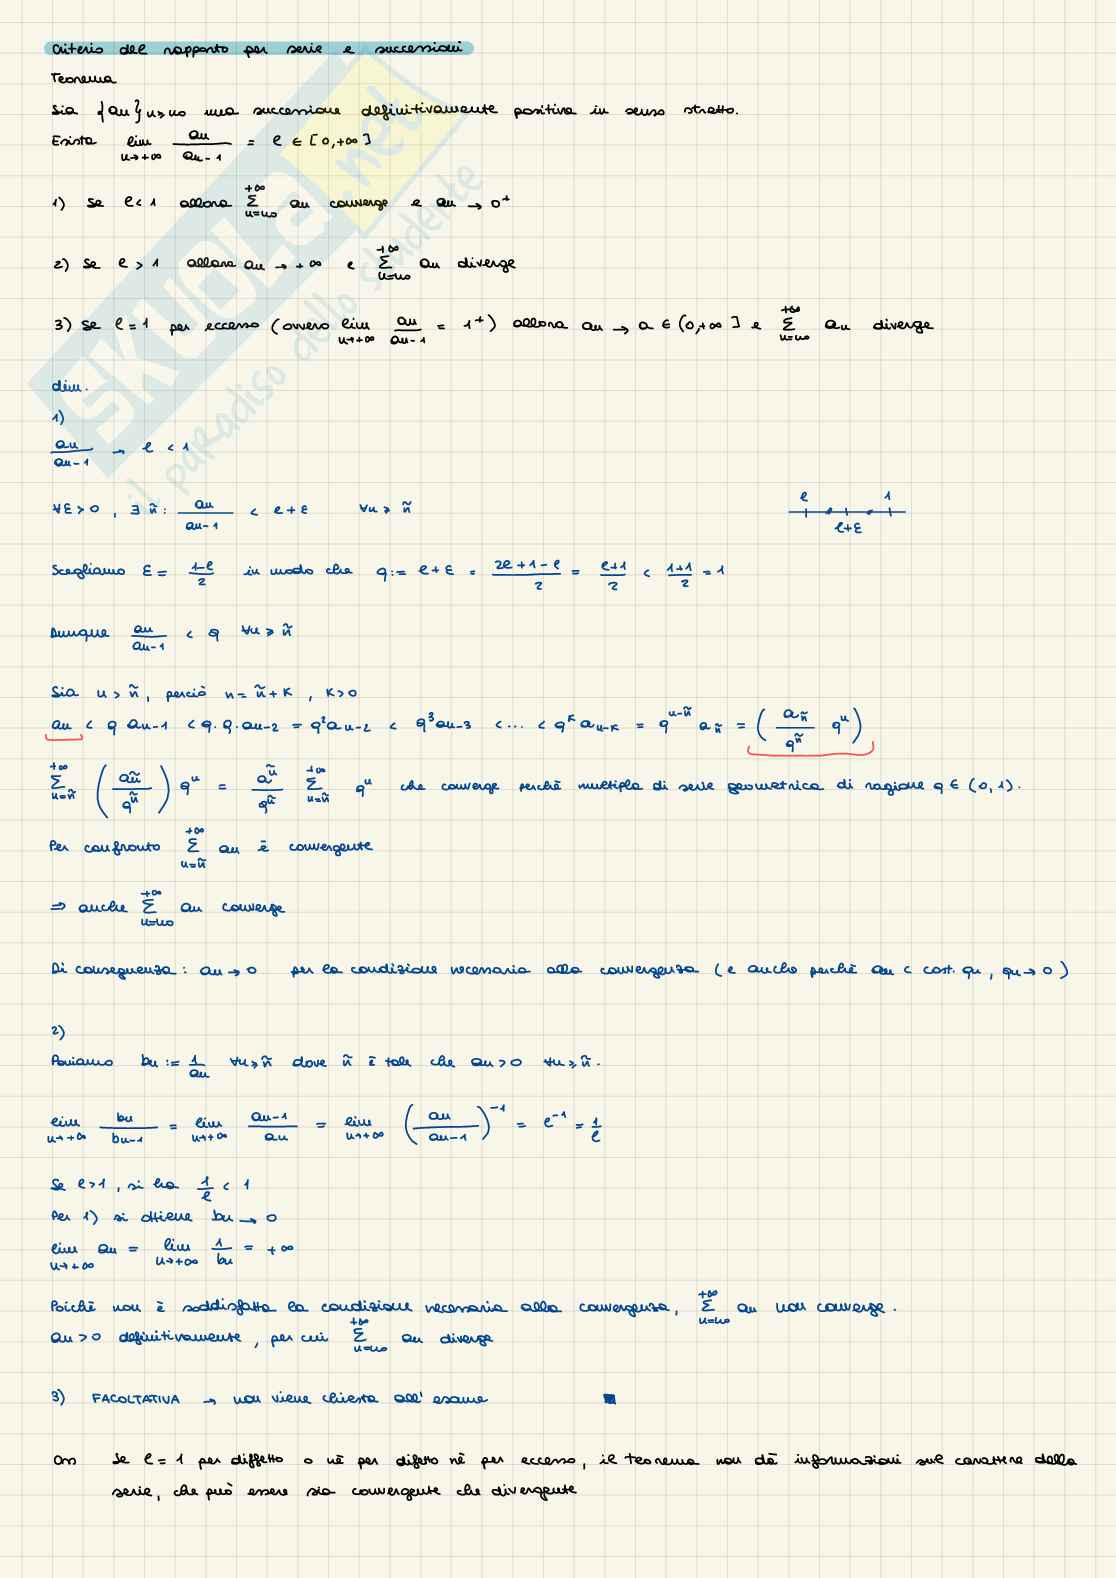 Criterio del rapporto per serie e successioni
Teorema
Sia {an}n≥n0 una successione definitivamente positiva in senso stretto.
Esista lim n→+∞ an/an-1 = l ∈ [0,+∞]
1) Se l<1 allora Σ n=n0 +∞ an converge e an → 0⁺
2) Se l>1 allora an → +∞ e Σ n=n0 +∞ an diverge
3) Se l=1 per eccesso (ovvero lim n→+∞ an/an-1 = 1⁺) allora an → a ∈ (0,+∞] e Σ n=n0 +∞ an diverge
dim.
1)
an/an-1 → l < 1
∀ε>0, ∃ ñ: an/an-1 < l+ε ∀n≥ñ
l 1
l+ε
Scegliamo ε = (1-l)/2 in modo che q:= l+ε = (2l+1-l)/2 = (l+1)/2 < (1+1)/2 = 1
Dunque an/an-1 < q ∀n≥ñ
Sia n>ñ, perciò n=ñ+k, k>0
an < q an-1 < q·q·an-2 = q²an-2 < q³an-3 <...< q^k an-k = q^(n-ñ) añ = (añ/q^ñ q^n)
Σ n=ñ +∞ (añ/q^ñ) q^n = añ/q^ñ Σ n=ñ +∞ q^n che converge perché multipla di serie geometrica di ragione q ∈ (0,1).
Per confronto Σ n=ñ +∞ an è convergente
⇒ anche Σ n=n0 +∞ an converge
Di conseguenza: an→0 per la condizione necessaria alla convergenza (e anche perché an < cost. qn, qn→0)
2)
Poniamo bn := 1/an ∀n≥ñ dove ñ è tale che an>0 ∀n≥ñ.
lim n→+∞ bn/bn-1 = lim n→+∞ an-1/an = lim n→+∞ (an/an-1)⁻¹ = l⁻¹ = 1/l
Se l>1, si ha 1/l < 1
Per 1) si ottiene bn → 0
lim n→+∞ an = lim n→+∞ 1/bn = +∞
Poiché non è soddisfatta la condizione necessaria alla convergenza, Σ n=n0 +∞ an non converge.
an>0 definitivamente, per cui Σ n=n0 +∞ an diverge
3) FACOLTATIVA → non viene chiesta all'esame ■
Oss Se l=1 per diffetto o nè per difetto nè per eccesso, il teorema non dà informazioni sul carattere della
serie, che può essere sia convergente che divergente
SKUOLA.net
il paradiso dello studente